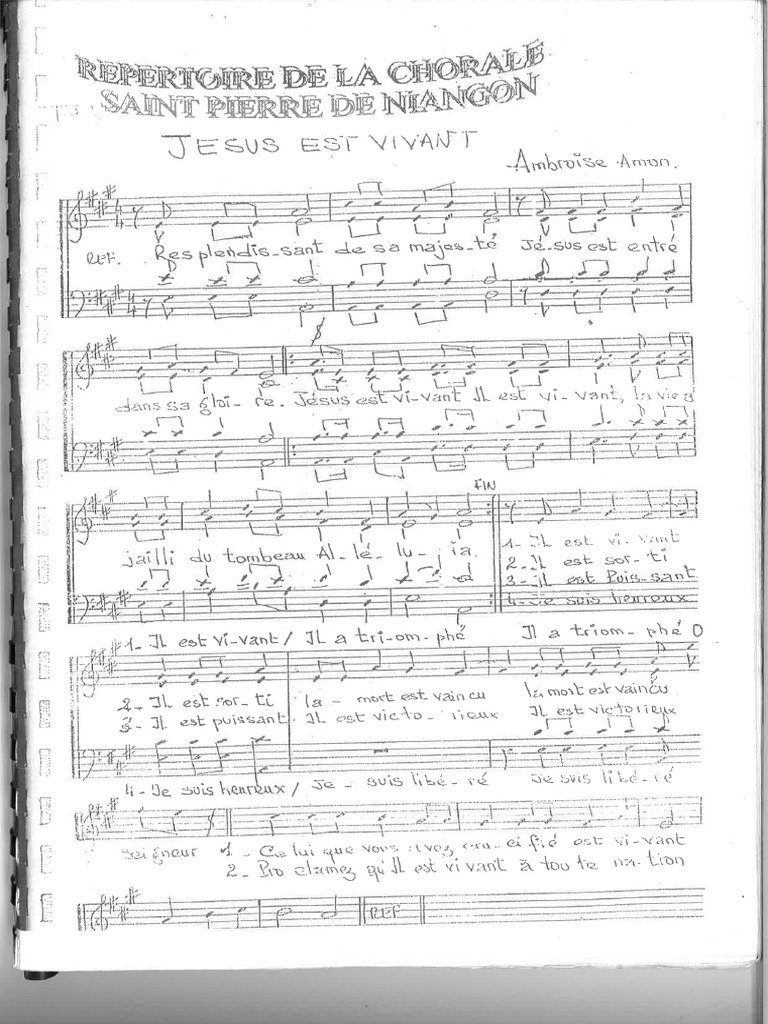 REPERTOIRE DE LA CHORALE
SAINT PIERRE DE NIANGON
JESUS EST VIVANT
Ambroise Amon.
REF. Resplendis-sant de sa majes-té Jé-sus est entré
dans sa gloi-re. Jésus est vi-vant Il est vi-vant, la vie a
FIN
jailli du tombeau Al-lé-lu-ia.
1- Il est vi-vant
2- Il est sor-ti
3- il est Puis-sant
4- Je suis heureux
1- Il est vi-vant / Il a tri-om-phé Il a triom-phé O
2- Il est sor-ti la - mort est vaincu la mort est vaincu
3- Il est puissant. Il est victo-rieux Il est victorieux
4- Je suis heureux / Je - suis libé-ré Je suis libé-ré
Seigneur 1- Celui que vous avez cru-ci fié est vi-vant
2- Pro clamez qu'Il est vivant à tou te na-tion
REF